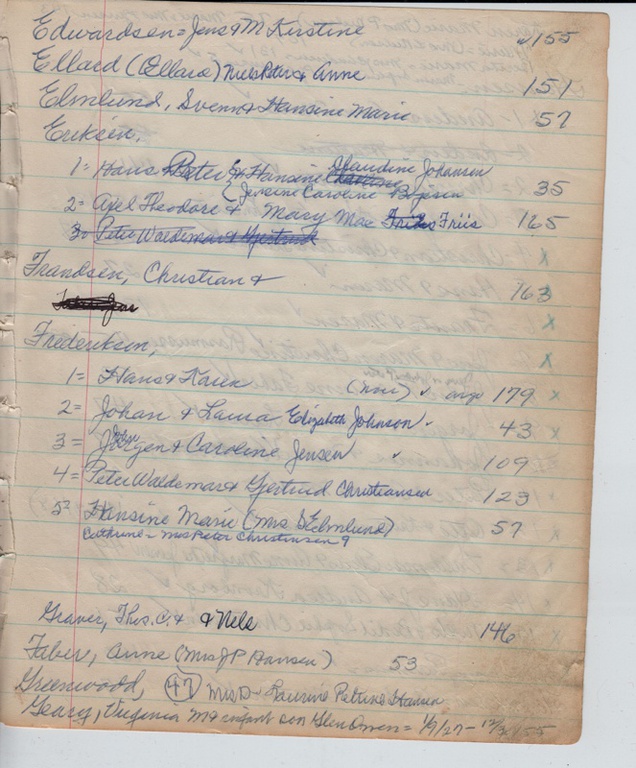 Edwardsen = Jens & M Kirstine 155
Ellard (Ollard) Niels Peter & Anne 151
Elmlund, Svenn & Hansine Marie 57
Eriksen,
1 = Hans Peter & Hansine Claudine Johansen
Jensine Caroline Bojesen 35
2 = Axel Theodore & Mary Mae Friis 165
3 = Peter Waldemar & Gertrud
Frandsen, Christian & 163
Frederiksen,
1 = Hans & Karen (now) ✓ 179
2 = Johan & Laura Elizabeth Johnson ✓ 43
3 = Jorgen & Caroline Jensen ✓ 109
4 = Peter Waldemar & Gertrud Christiansen 123
5 = Hansine Marie (Mrs S Elmlund) 57
Cathrine - Mrs Peter Christensen 9
Graver, Thos. C. & & Nels 146
Faber, Anne (Mrs J P Hansen) 53
Greenwood, (47) Mrs D - Laurine Pettrine Hansen
Geary, Virginia and infant son Glen Owen = 1/9/27 -